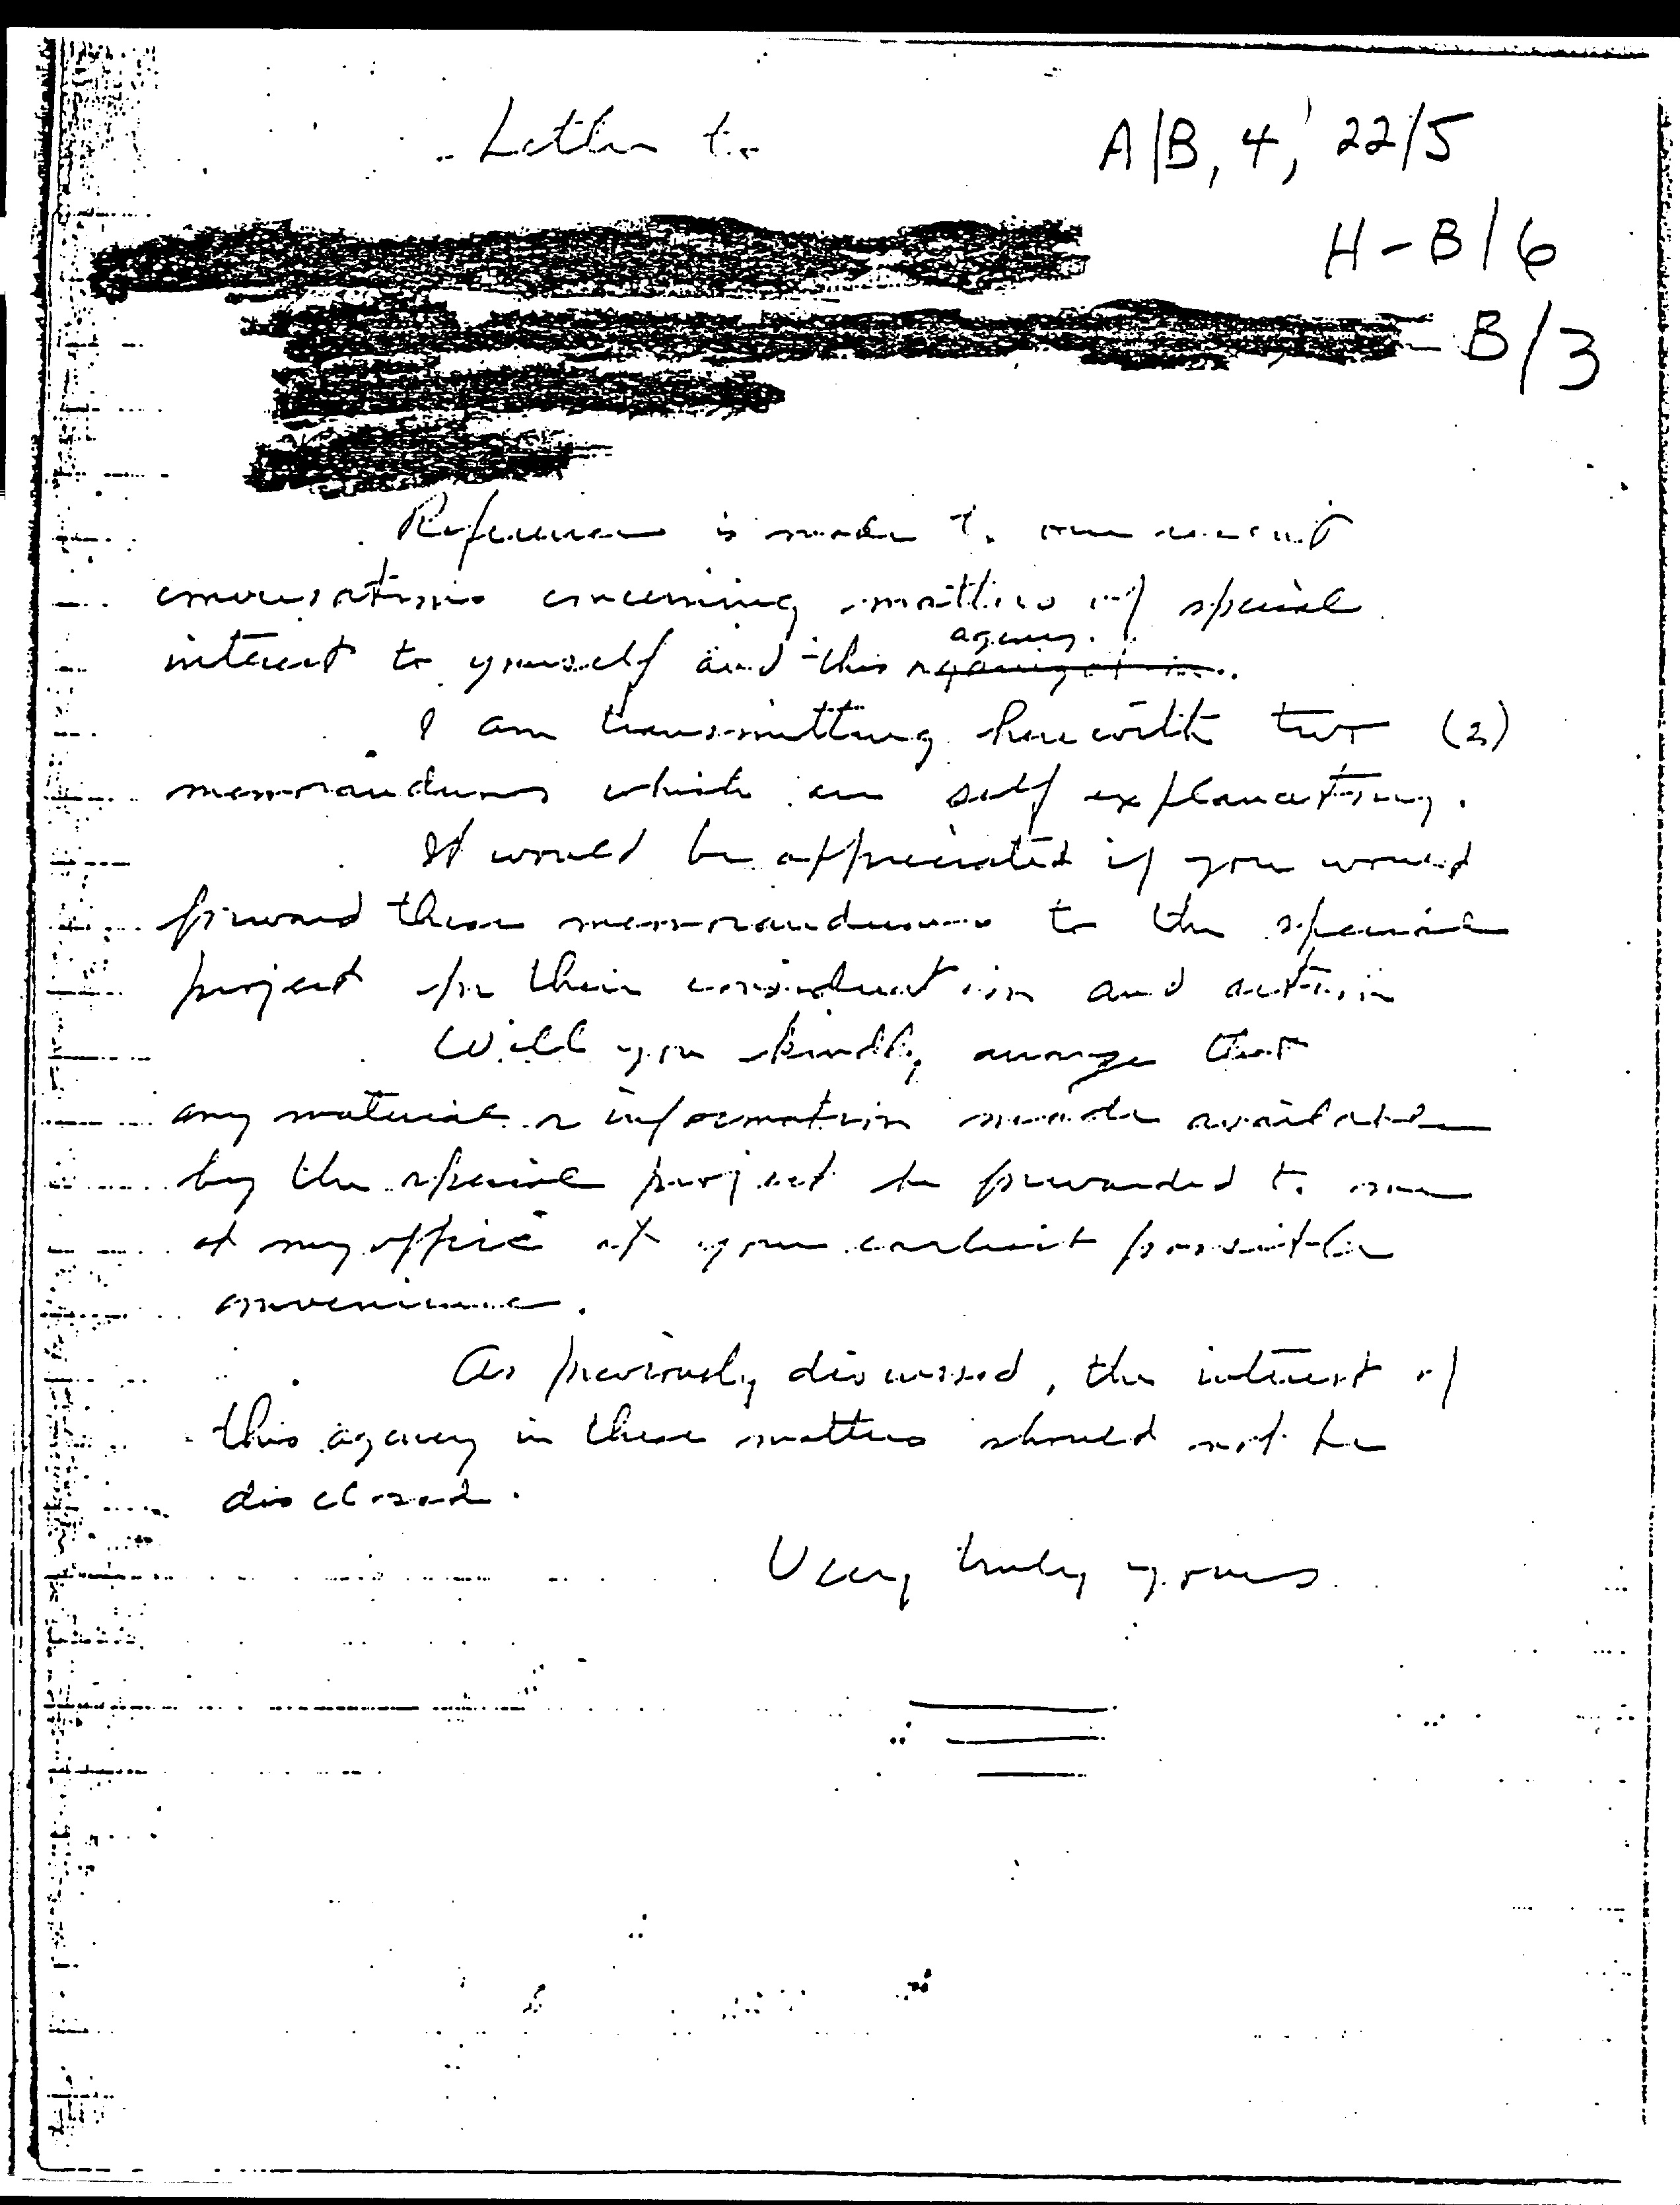 Letter to
A/B, 4, 22/5
H-B/6
B/3
Reference is made to our recent
conversations concerning matters of special
agency.
interest to yourself and this organization.
I am transmitting herewith two (2)
memorandums which are self explanatory.
It would be appreciated if you would
forward these memorandums to the special
project for their consideration and action
Will you kindly arrange that
any material or information made available
by the special project be forwarded to me
at my office at your earliest possible
convenience.
As previously discussed, the interest of
this agency in these matters should not be
disclosed.
Very truly yours